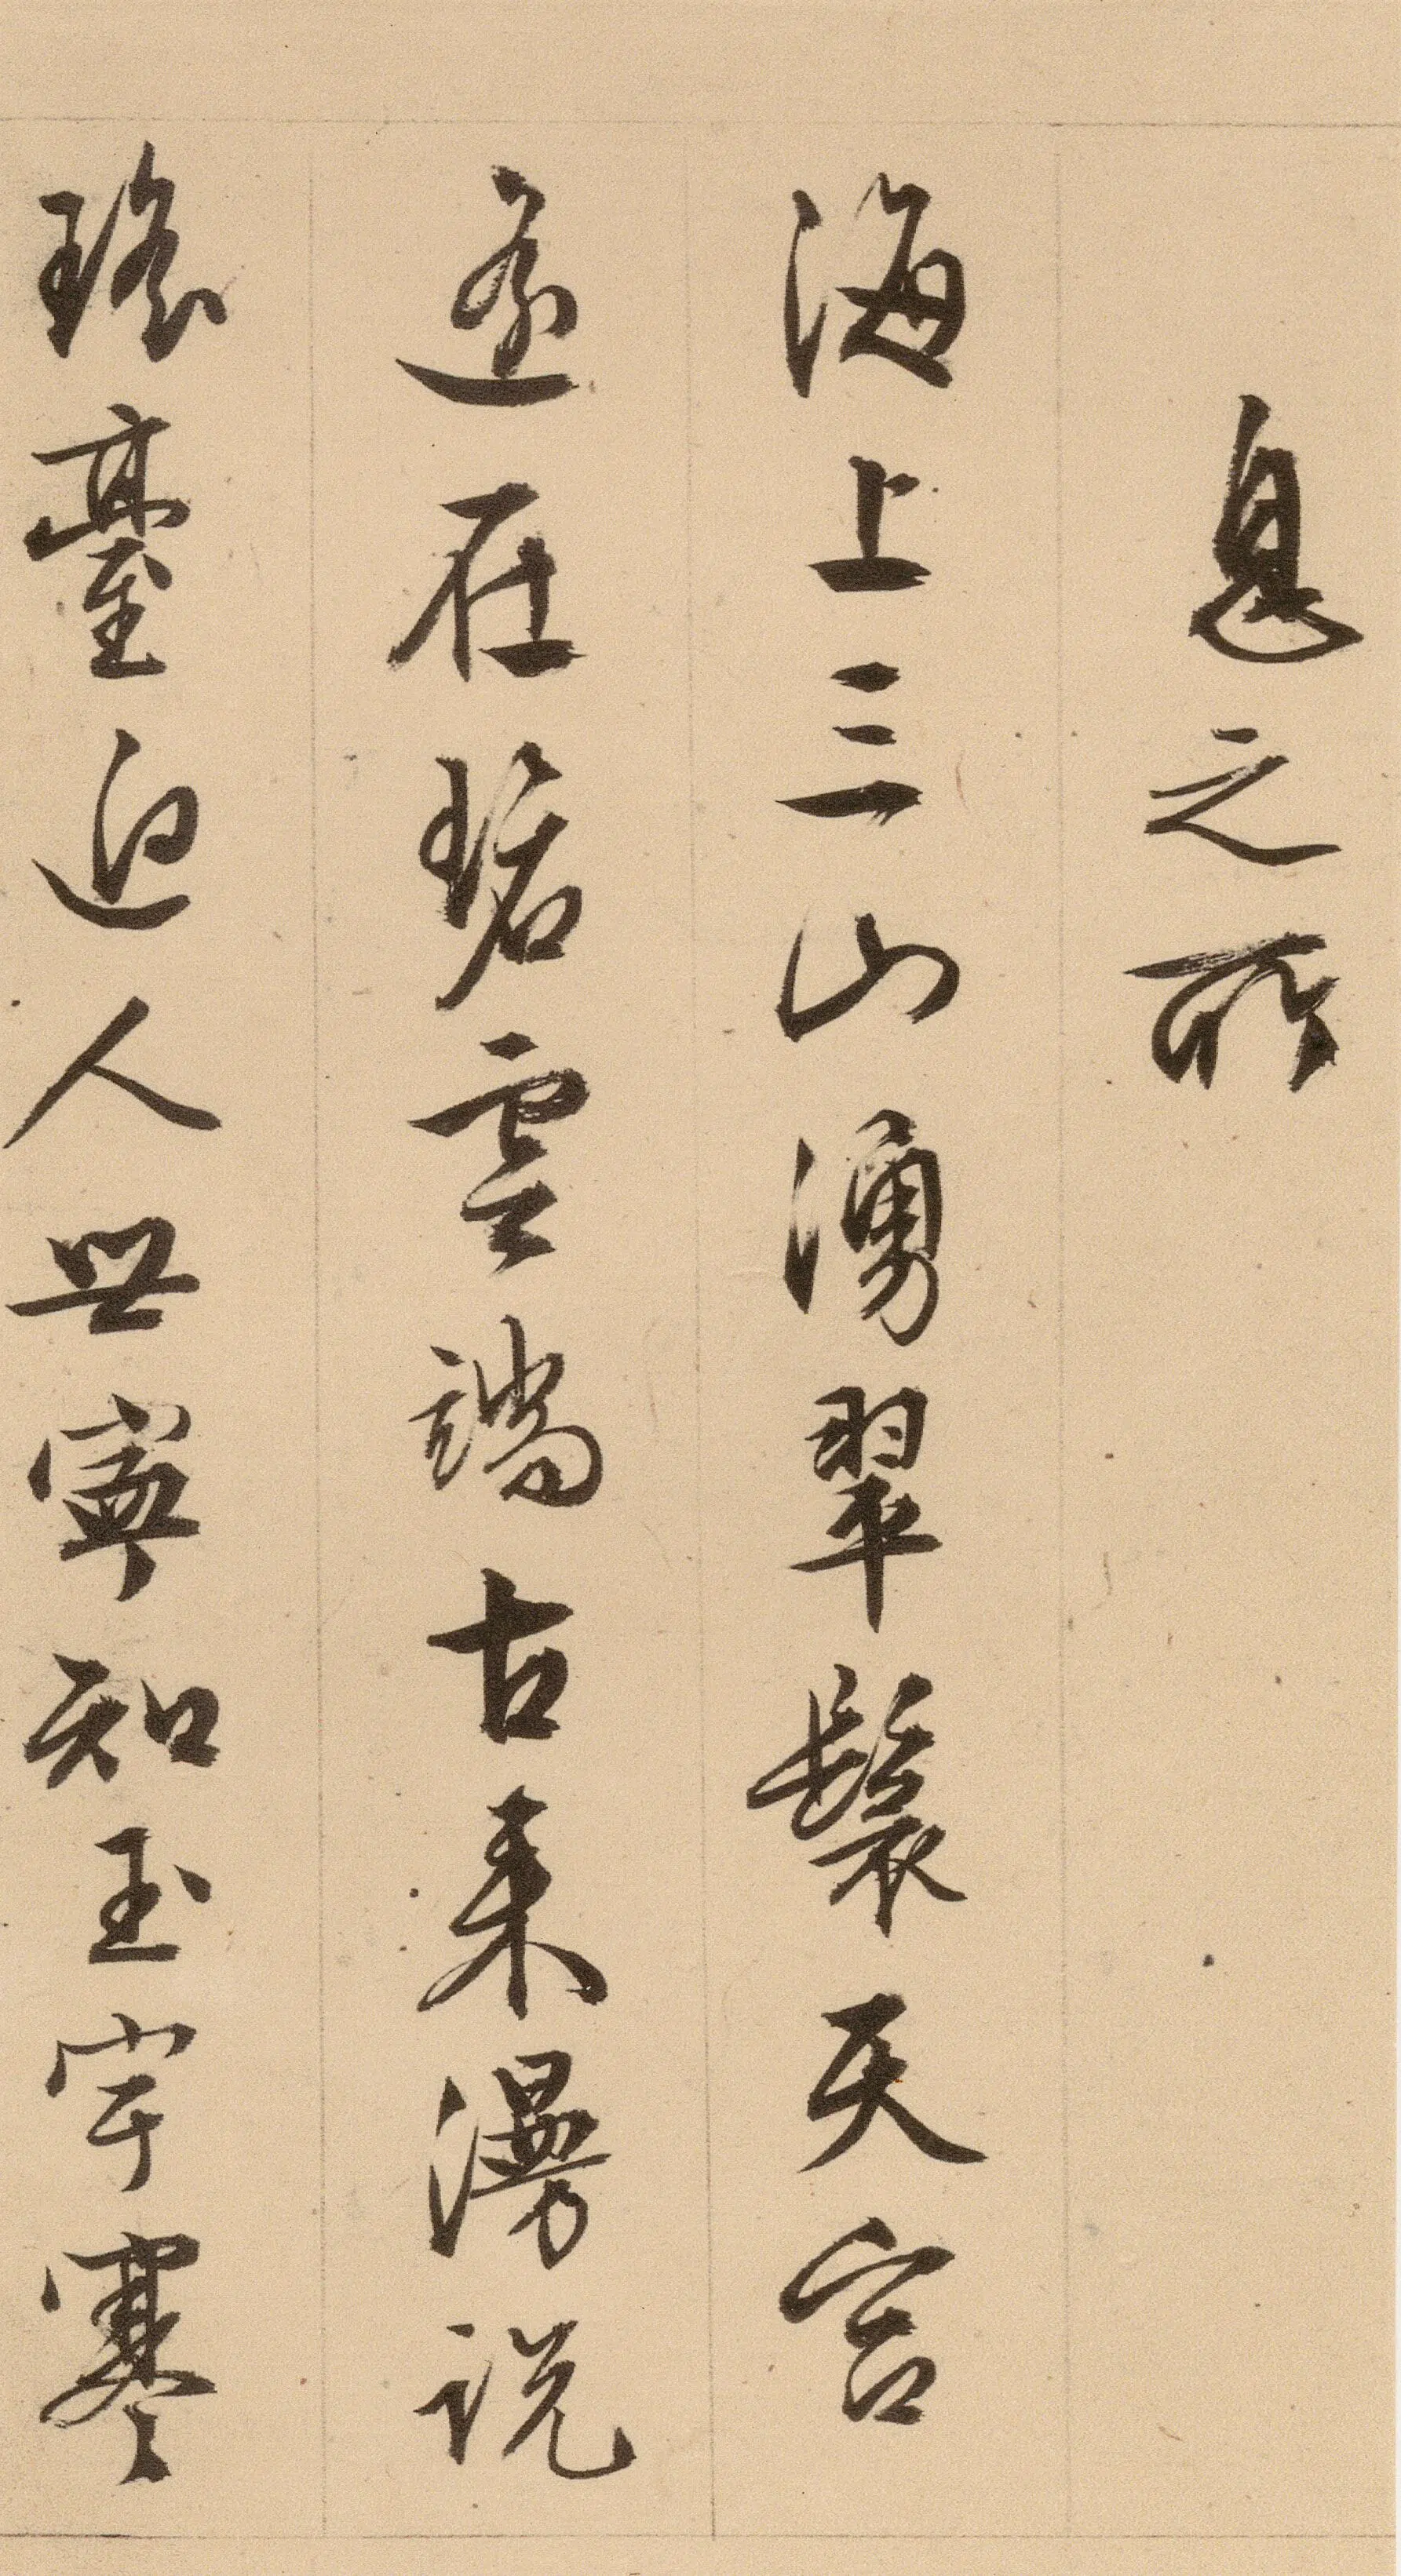 息之所
海上三山湧翠鬟天宮
遙在碧雲端古来漫説
瑤臺迥人世寧知玉宇寒